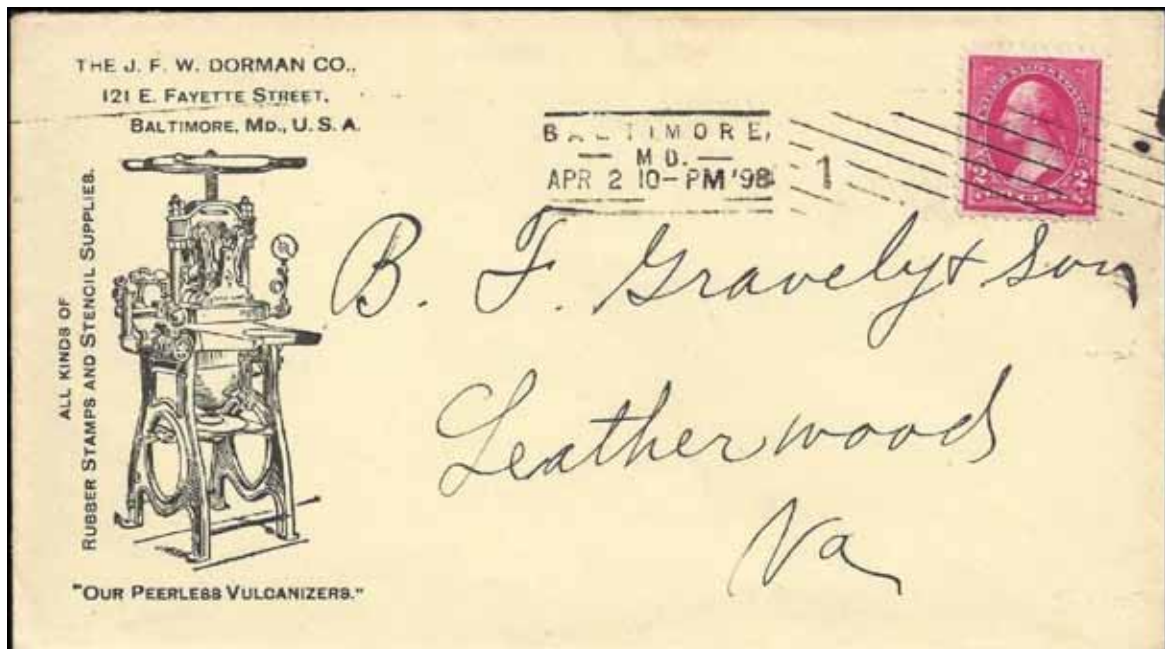 THE J. F. W. DORMAN CO.,
121 E. FAYETTE STREET.
BALTIMORE, MD., U. S. A.
ALL KINDS OF
RUBBER STAMPS AND STENCIL SUPPLIES.
"OUR PEERLESS VULCANIZERS."
BALTIMORE,
MD.
APR 2 10-PM '98
1
2 2
B. F. Gravely & Son
Leatherwood
Va